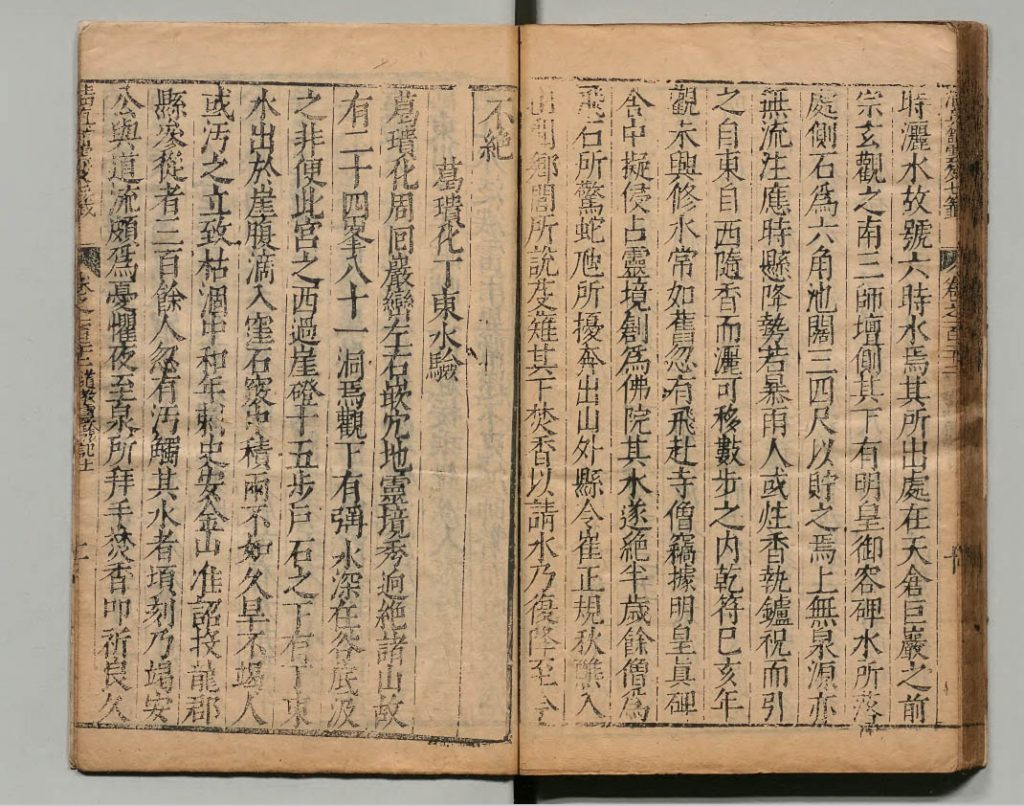 時灑水故號六時水焉其所出處在天倉巨巖之前
宗玄觀之南三師壇側其下有明皇御容碑水所落
處側石爲六角池闊三四尺以貯之焉上無泉源亦
無流注應時縣降勢若暴雨人或炷香執鑪祝而引
之自東自西隨香而灑可移數步之內乾符己亥年
觀未興修水常如舊忽有飛赴寺僧竊據明皇眞碑
舍中擬侵占靈境創爲佛院其水遂絕半歲餘僧爲
飛石所驚蛇虺所擾奔出山外縣令崔正規秋醮入
山聞鄉閭所說芟薙其下焚香以請水乃復降至今
不絕
葛璝化丁東水驗
葛璝化周回巖巒左右嵌穴地靈境秀迥絕諸山故
有二十四峯八十一洞焉觀下有溺水深在谷底汲
之非便此宮之西過崖磴十五步戶石之下有丁東
水出於崖腹滴入窪石窾中積雨不加久旱不竭人
或汚之立致枯涸中和年刺史安金山准詔投龍郡
縣參從者三百餘人忽有汚觸其水者頃刻乃竭安
公與道流頗爲憂懼夜至泉所拜手焚香叩祈良久